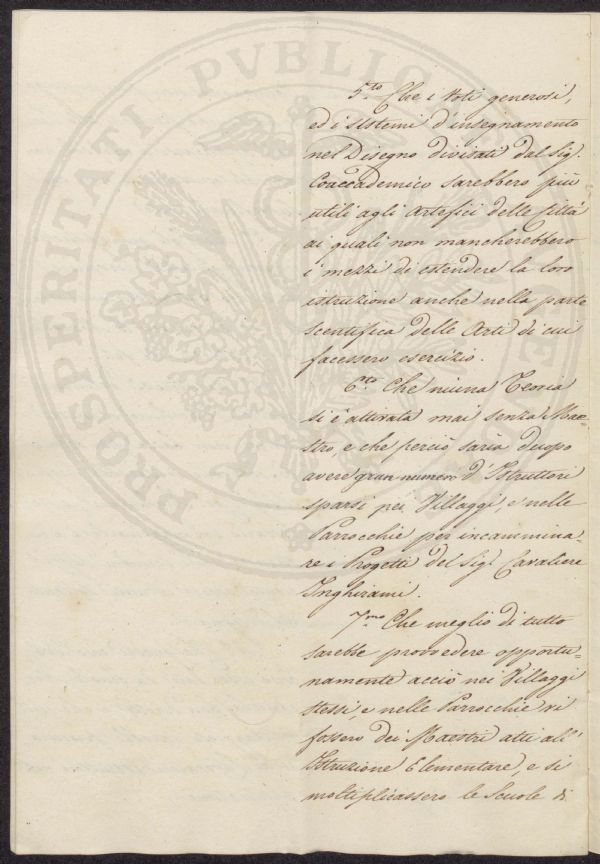 PROSPERITATI PUBLICAE
5.to Che i Voti generosi,
ed i sistemi d'insegnamento
nel Disegno divisati dal Sig.
Coaccademico sarebbero più
utili agli Artefici delle Città
ai quali non mancherebbero
i mezzi di estendere la loro
istruzione anche nella parte
scentifica delle Arti di cui
facessero esercizio.
6.to Che niuna Teoria
si è attivata mai senza Mae=
stro, e che perciò saria duopo
avere gran numero d'Istruttori
sparsi pei Villaggi, e nelle
Parrocchie per incammina=
re i Progetti del Sig.r Cavaliere
Inghirami.
7.mo Che meglio di tutto
sarebbe provvedere opportu=
namente acciò nei Villaggi
stessi, e nelle Parrocchie vi
fossero dei Maestri atti all'
Istruzione Elementare, e si
moltiplicassero le Scuole di